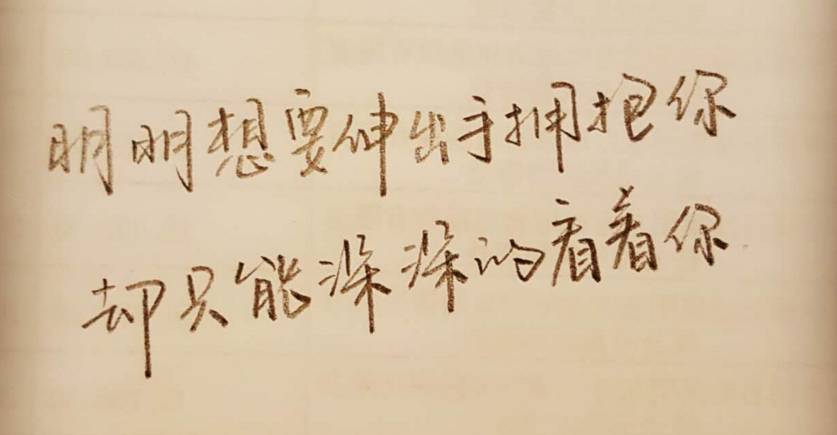 明明想要伸出手拥抱你
却只能深深的看着你